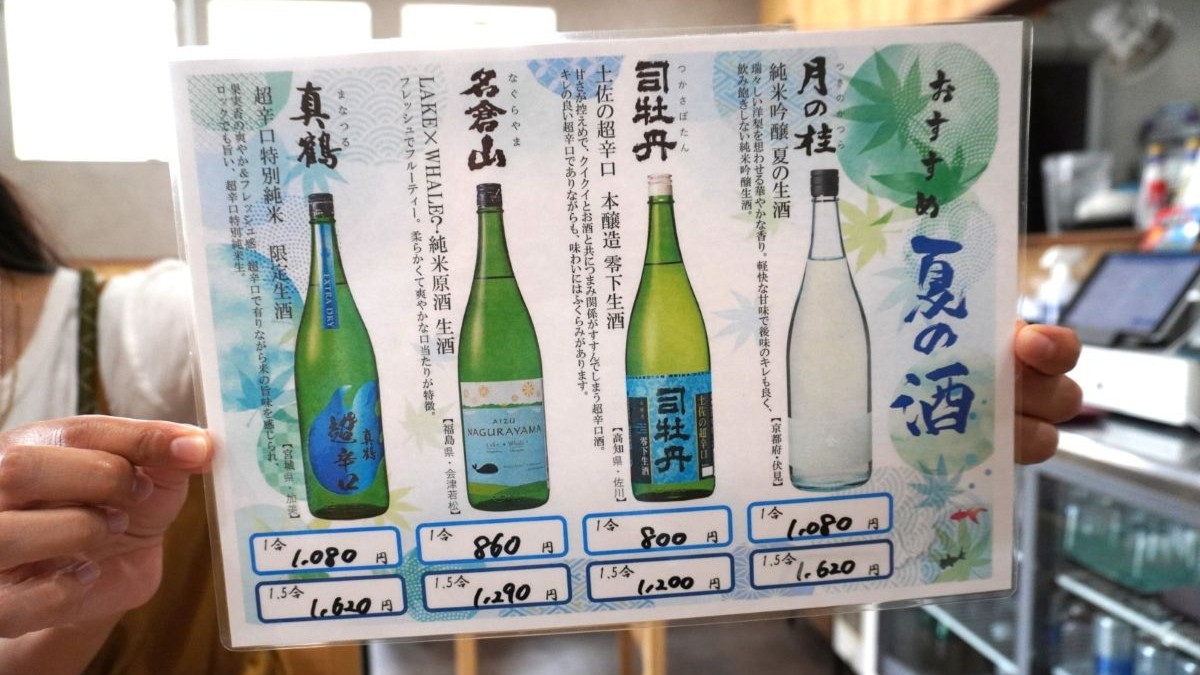 おすすめ
夏の酒
つきのかつら
月の桂
純米吟醸 夏の生酒
瑞々しい洋梨を思わせる華やかな香り。軽快な甘味で後味のキレも良く、
飲み飽きしない純米吟醸生酒。
【京都府・伏見】
1合 1,080 円
1.5合 1,620 円
つかさぼたん
司牡丹
土佐の超辛口 本醸造 零下生酒
甘さが控えめで、クイクイとお酒と共につまみ関係がすすんでしまう超辛口酒。
キレの良い超辛口でありながらも、味わいにはふくらみがあります。
【高知県・佐川】
土佐の超辛口
司牡丹
零下生酒
1合 800 円
1.5合 1,200 円
なぐらやま
名倉山
LAKE×WHALE? 純米原酒 生酒
フレッシュでフルーティー。柔らかくて爽やかな口当たりが特徴。
【福島県・会津若松】
AIZU
NAGURAYAMA
1合 860 円
1.5合 1,290 円
まなつる
真鶴
超辛口特別純米 限定生酒
果実香の爽やか&フレッシュ感。超辛口で有りながら米の旨味を感じられ、
ロックでも旨い、超辛口特別純米生。
【宮城県・加美】
EXTRA DRY
真鶴
超辛口
1合 1,080 円
1.5合 1,620 円